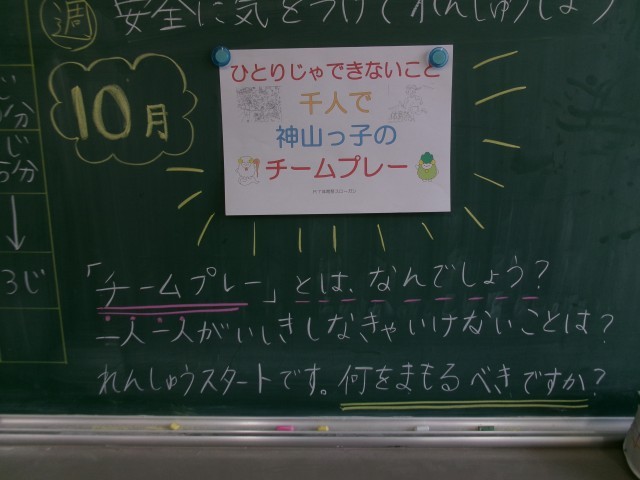 週 安全に気をつけてれんしゅうしよう
10月
ひとりじゃできないこと
千人で
神山っ子の
チームプレー
「チームプレー」とは、なんでしょう?
一人一人がいしきしなきゃいけないことは?
れんしゅうスタートです。何をまもるべきですか?
じ
分
じ
5分
↓
3じ